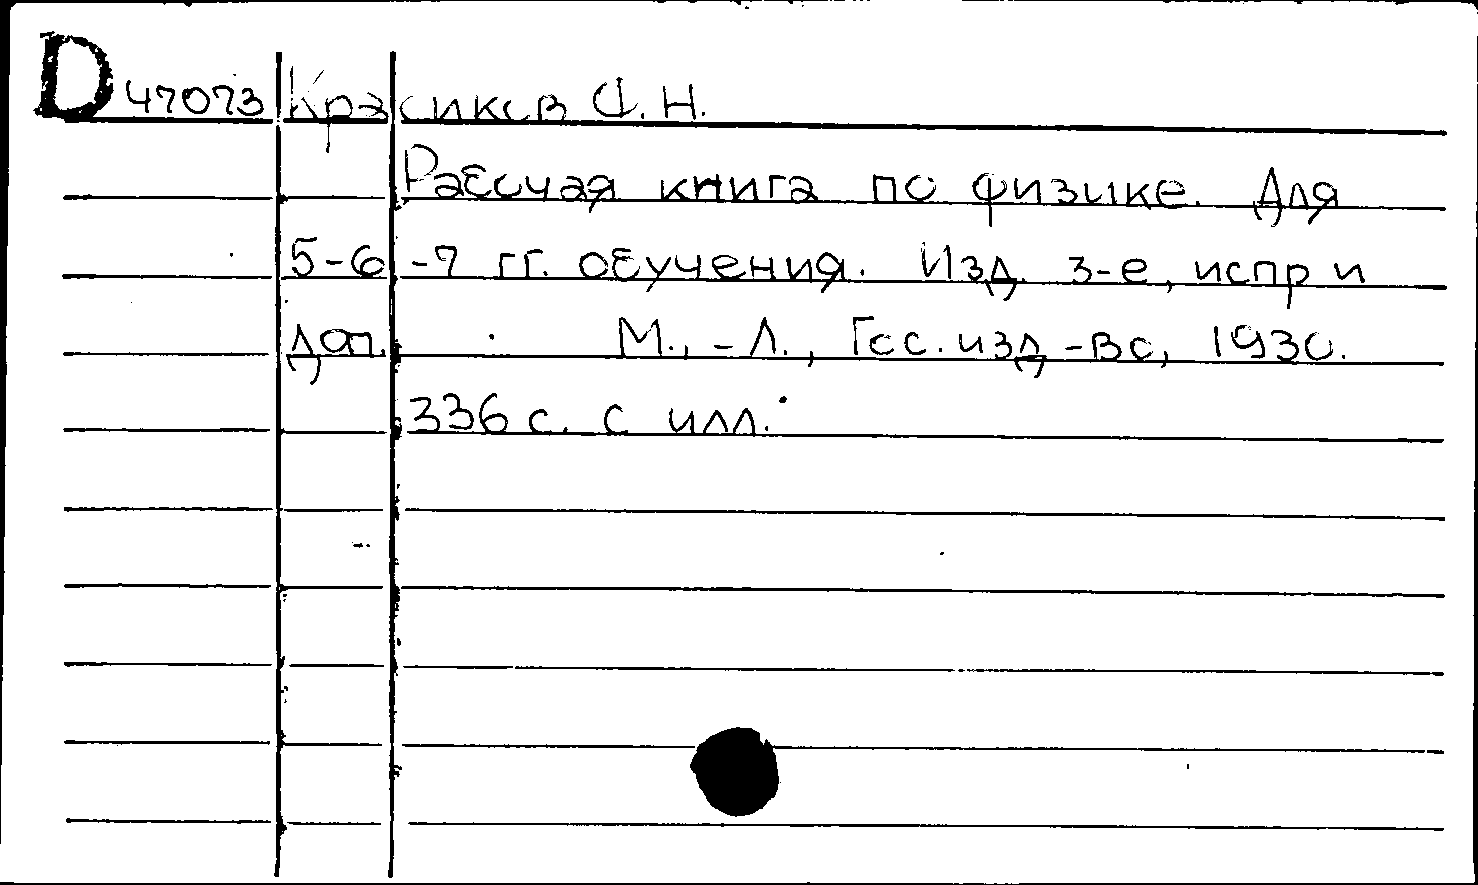 D 47073 Красиков Ф. Н.
Рабочая книга по физике. Для
5-6-7 гг. обучения. Изд. 3-е, испр и
доп. М., -Л., Гос. изд-во, 1930.
336 с. с илл.